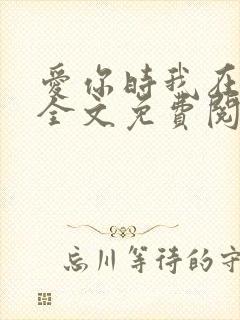 愛你時我在
全文免費閱
忘川等待的守